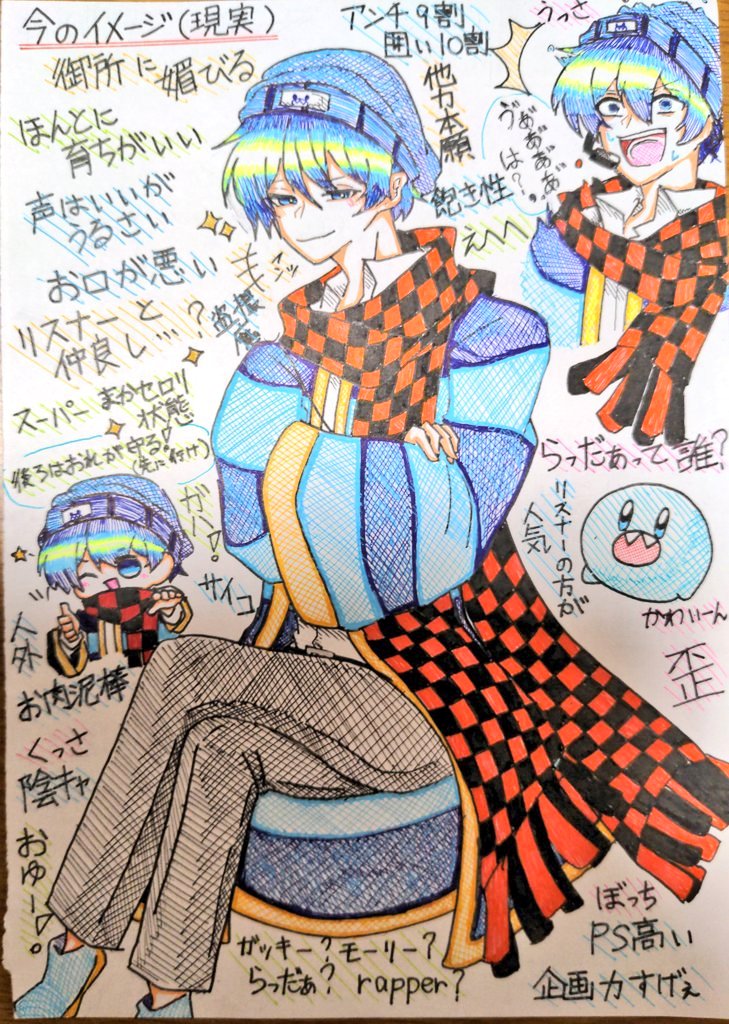 今のイメージ(現実)
御所に
媚びる
ほんとに
育ちがいい
声はいいが
うるさい
お口が悪い
リスナーと
仲良し…?
アンチ9割
囲い10割
他力本願
飽き性
えへへ
うっさ
は?
スーパーまかセロリ
状態!
後ろはおれが守る!
ガバ!
サイコ
人外
お肉泥棒
くっさ
陰キャ
おゆー!
らっだぁって誰?
リスナーの方が
人気
かわいーん
歪
ガッキー?モーリー?
らっだぁ?rapper?
ぼっち
PS高い
企画力すげぇ